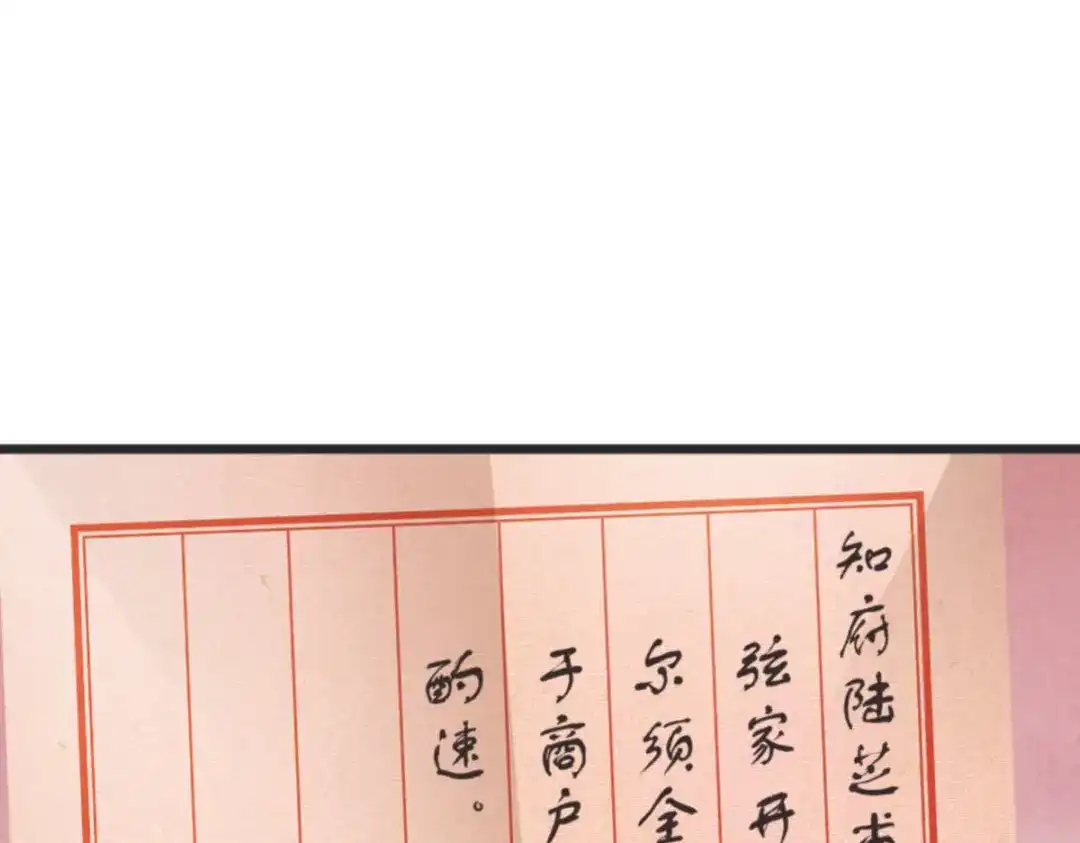 知府陆芝
弦家开
尔须全
于商户
酌速。